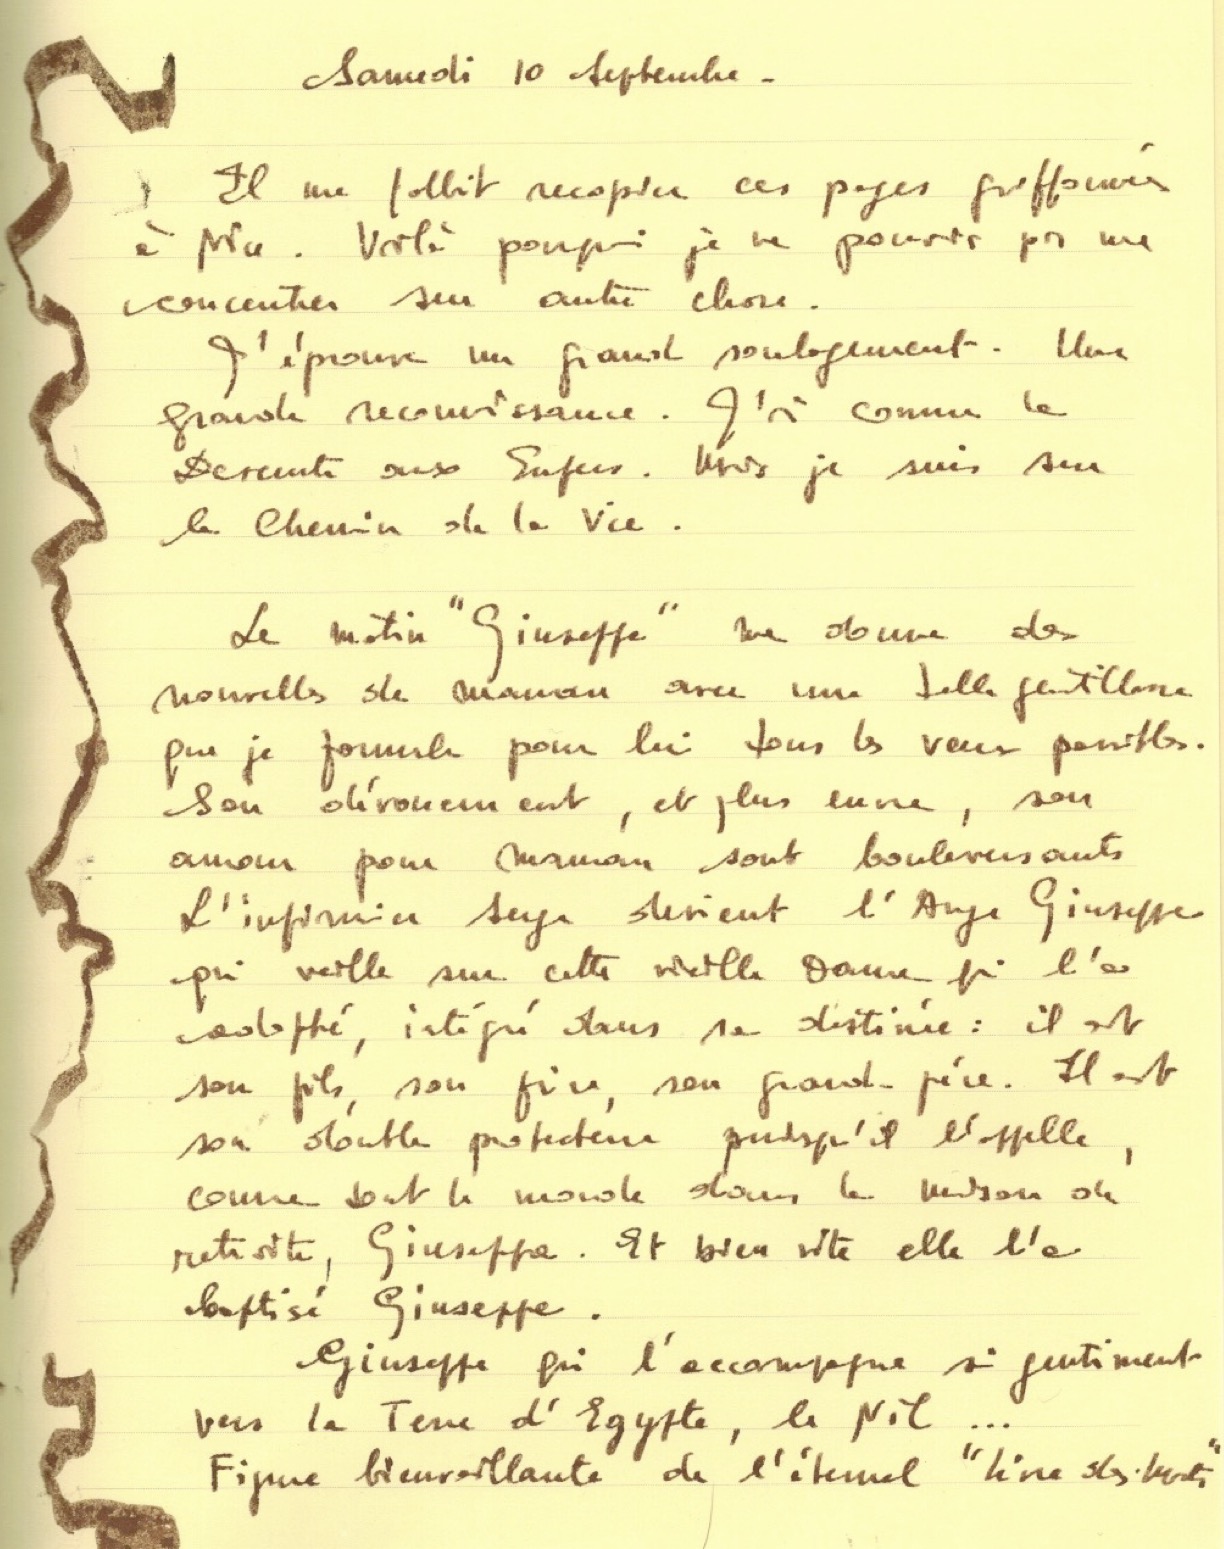 Samedi 10 Septembre -
Il me fallait recopier ces pages griffonnées
à Nice. Voilà pourquoi je ne pouvais pas me
concentrer sur autre chose.
J'éprouve un grand soulagement. Une
grande reconnaissance. J'ai connu la
Descente aux Enfers. Mais je suis sur
le Chemin de la Vie.
Le matin "Giuseppe" me donne des
nouvelles de maman avec une telle gentillesse
que je formule pour lui tous les vœux possibles.
Son dévouement, et plus encore, son
amour pour maman sont bouleversants
L'infirmier Serge devient l'Ange Giuseppe
qui veille sur cette vieille Dame qui l'a
adopté, intégré dans sa destinée : il est
son fils, son frère, son grand-père. Il est
son double protecteur puisqu'il l'appelle,
comme tout le monde dans la maison de
retraite, Giuseppa. Et bien vite elle l'a
baptisé Giuseppe.
Giuseppe qui l'accompagne si gentiment
vers la Terre d'Egypte, le Nil ...
Figure bienveillante de l'éternel "livre des Morts"